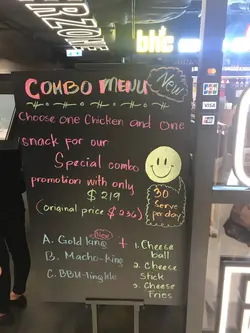 bhc
COMBO MENU
New
Choose one Chicken and One
snack for our
Special combo
promotion with only
$ 219
(original price $ 236)
30
Serve
per day
New
A. Gold king +
B. Macho-king
C. BBU-lingkle
1. Cheese
ball
2. Cheese
Stick
3. Cheese
Fries
VISA